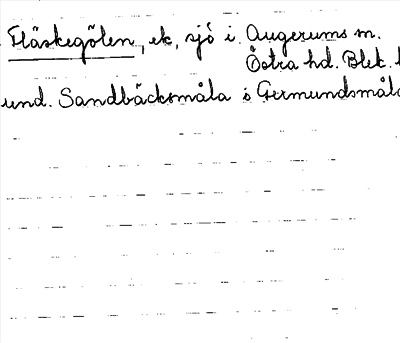 Fläskegölen, ek, sjö i Augerums sn.
Östra hd. Blek. l
und. Sandbäcksmåla o Germundsmåla